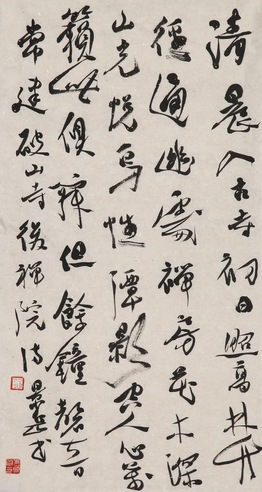 清晨入古寺初日照高林竹
徑通幽處禪房花木深
山光悦鳥性潭影空人心萬
籟此俱寂但餘鐘磬音
常建破山寺後禪院詩